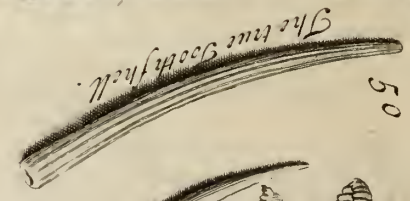 The true Toothſhell.
50